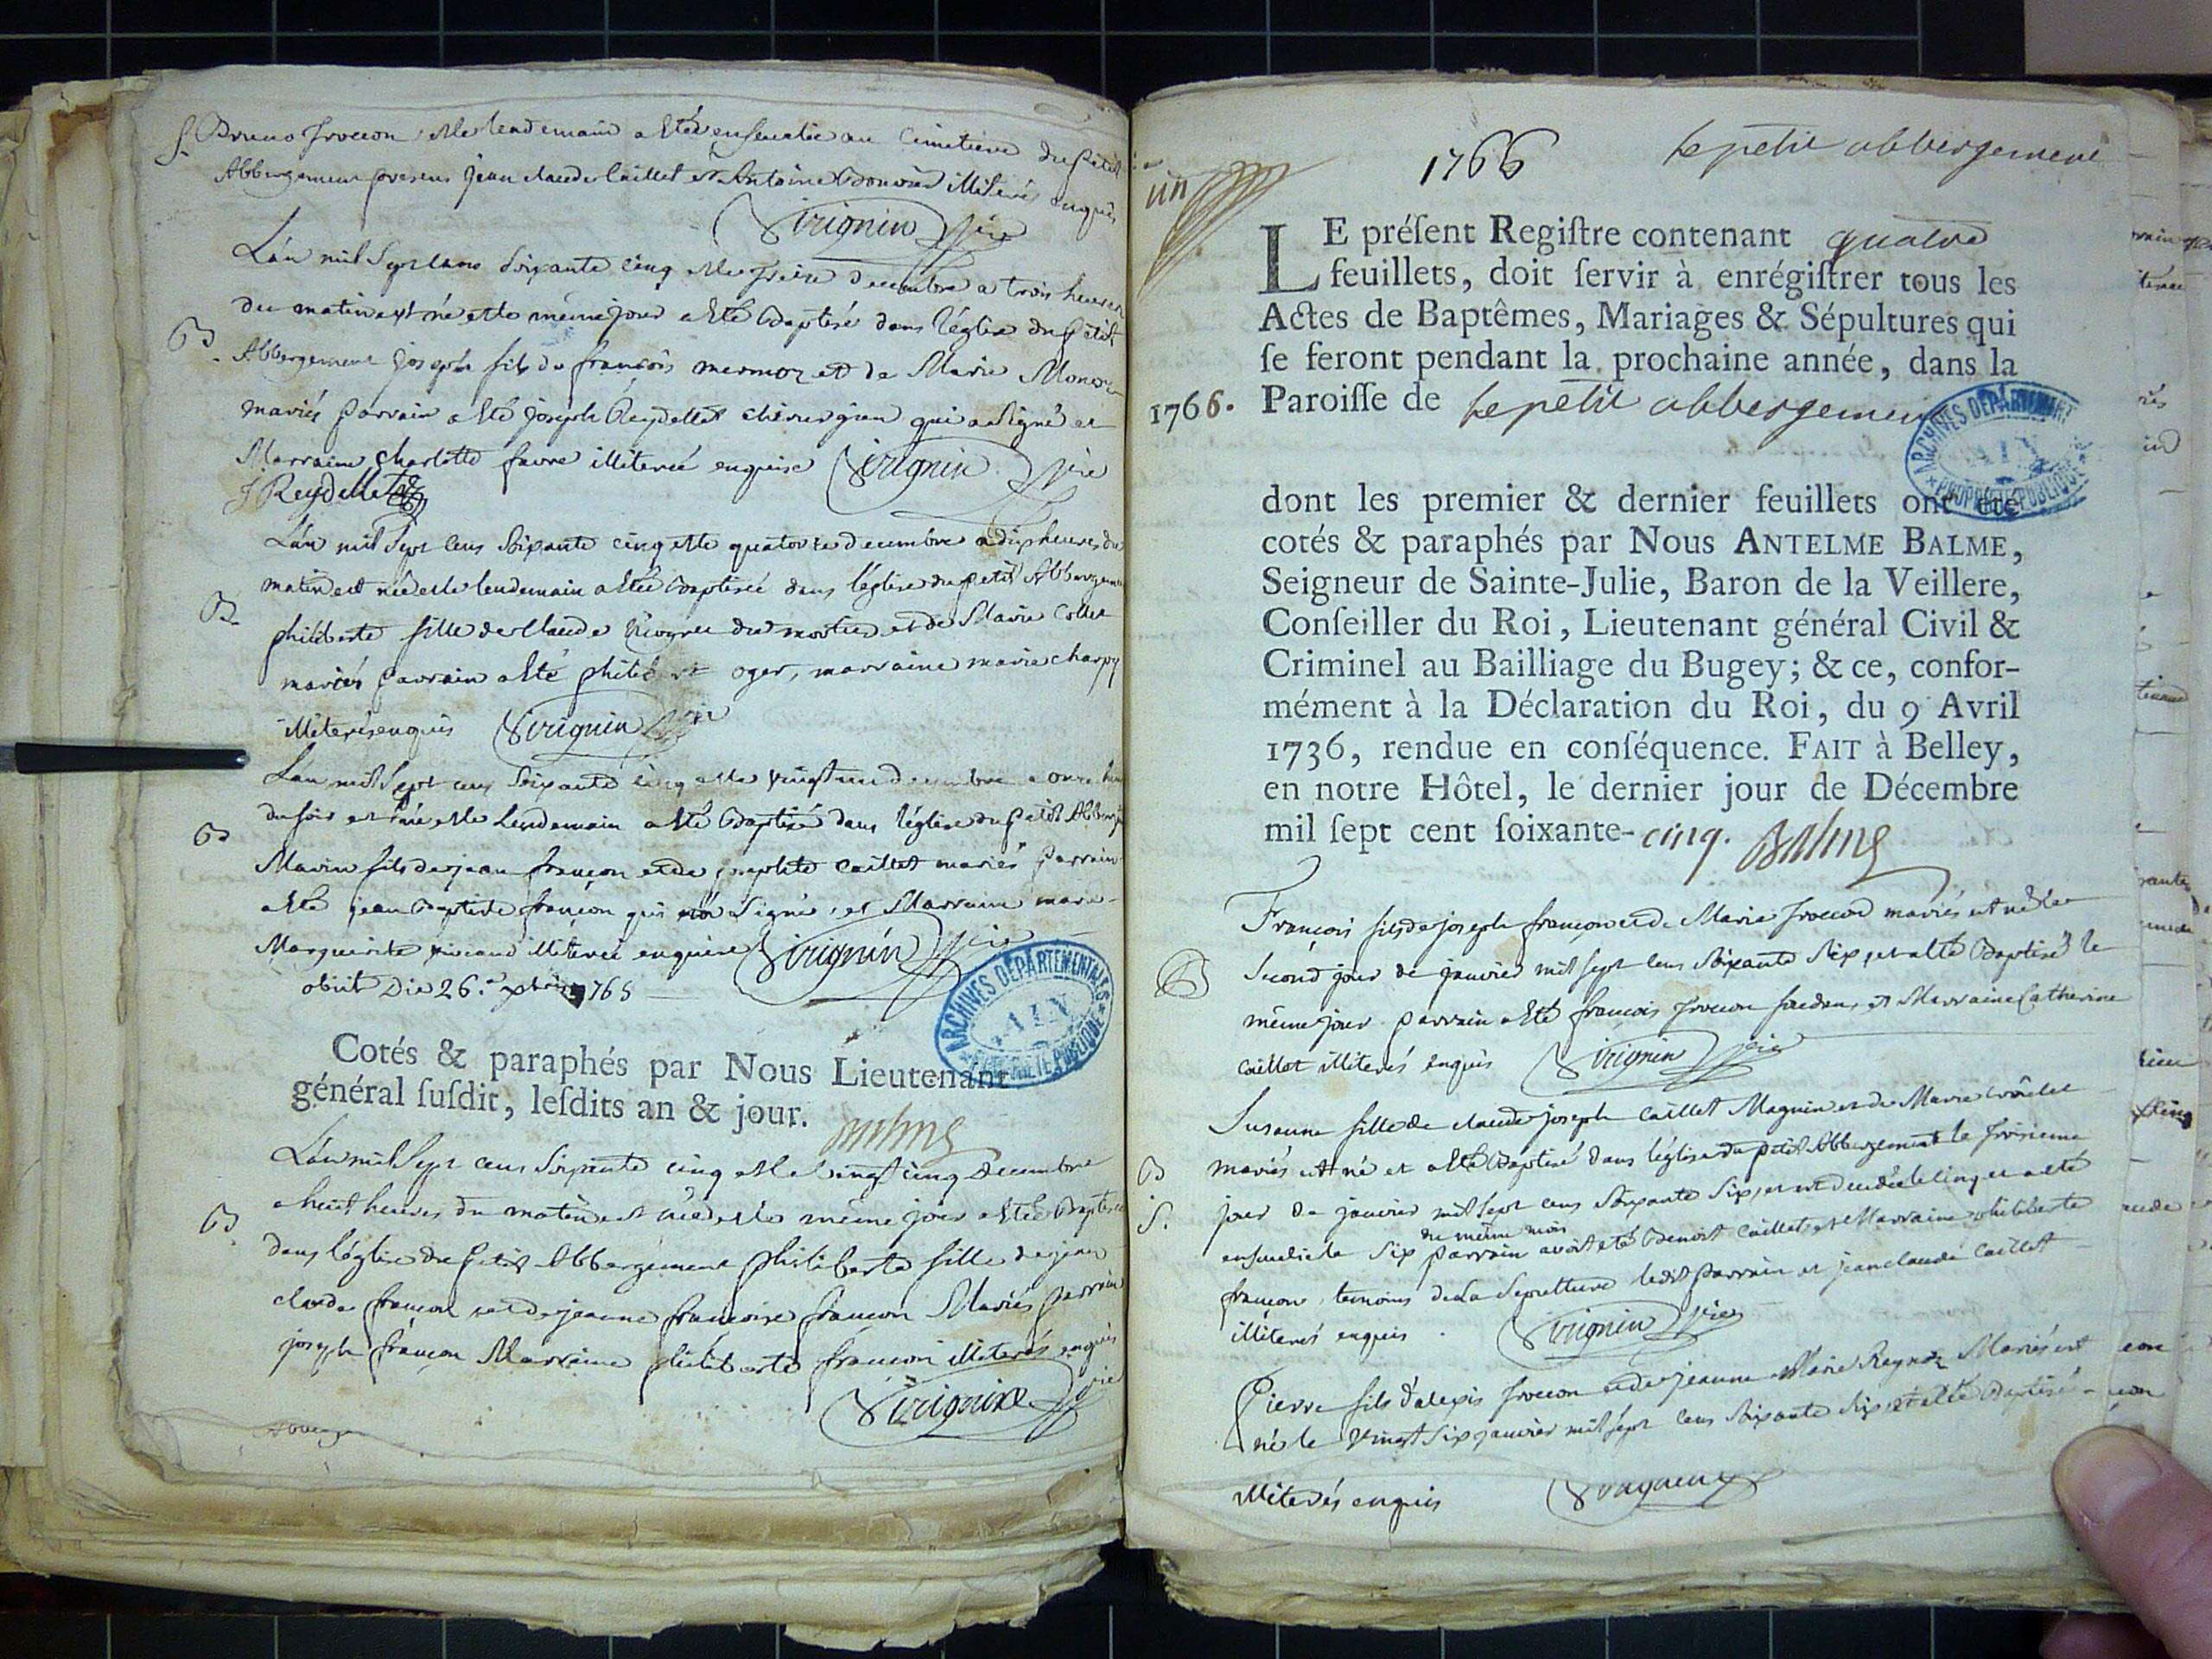 S. Bruno froccon et le lendemain a étée ensevelie au Cimetiere du petit
Abbergement presens jean claude Caillet et Antoine Bonvoisin illiterés enquis
Sirignin vire
L'an mil sept cens soixante cinq et le treize decembre a trois heures
du matin est né et le même jour a été baptisé dans l'église du petit
B. Abbergement joseph fils de françois mermoz et de Marie
mariés parrain a été joseph Reydellet chirurgien qui a signé et
Marraine charlotte favre illiterée enquise Sirignin vire
J Reydellet
L'an mil sept cens soixante cinq et le quatorze decembre a dix heures du
matin est née et le lendemain a étée baptisée dans l'église du petit Abbergement
B. philiberte fille de Claude du mortier et de Marie Collet
mariés parrain a été philibert oger, marraine marie charpy
illiterés enquis Sirignin vire
L'an mil sept cens soixante cinq et le vingt un decembre a onze heures
du soir est né et le lendemain a été baptisé dans l'église du petit
B Marin fils de jean françon et de josephte caillet mariés parrain
a été jean Baptiste françon qui a signé, et Marraine marie
Marguerite illiterée enquise Sirignin vire
obiit Die 26.a 1765
ARCHIVES DÉPARTEMENTALES
AIN
PROPRIÉTÉ PUBLIQUE
Cotés & paraphés par Nous Lieutenant
général susdit, lesdits an & jour. Balme
L'an mil sept cens soixante cinq et le vingt cinq decembre
a huit heures du matin est née et le même jour a étée baptisée
B. dans l'église du petit Abbergement philiberte fille de jean
claude françon et de jeanne françoise françon Mariés parrain
joseph françon Marraine philiberte françon illiterés enquis
Sirignin vire
1766 Le petit abbergement
un
LE présent Registre contenant quatre
feuillets, doit servir à enrégistrer tous les
Actes de Baptêmes, Mariages & Sépultures qui
se feront pendant la prochaine année, dans la
1766. Paroisse de Le petit abbergement
ARCHIVES DÉPARTEMENTALES
AIN
PROPRIÉTÉ PUBLIQUE
dont les premier & dernier feuillets ont été
cotés & paraphés par Nous ANTELME BALME,
Seigneur de Sainte-Julie, Baron de la Veillere,
Conseiller du Roi, Lieutenant général Civil &
Criminel au Bailliage du Bugey; & ce, confor-
mément à la Déclaration du Roi, du 9 Avril
1736, rendue en conséquence. FAIT à Belley,
en notre Hôtel, le dernier jour de Décembre
mil sept cent soixante-cinq. Balme
François fils de joseph françon et de Marie froccon mariés est né le
B second jour de janvier mil sept cens soixante six, et a été baptisé le
même jour parrain a été françois froccon et Marraine Catherine
caillet illiterés enquis Sirignin vire
Susanne fille de claude joseph Caillet Magnin et de Marie
B mariés est né et a été baptisé dans l'église du petit Abbergement le troisieme
S. jour de janvier mil sept cens soixante six, et est decedée le cinq et a été
ensevelie le six du même mois parrain avoit été Benoit Caillet, et Marraine philiberte
françon, temoins de la sepulture ledit parrain et jean claude Caillet
illiterés enquis. Sirignin vire
Pierre fils d'alexis froccon et de jeanne Marie Reynoz Mariés est
né le vingt six janvier mil sept cens soixante six, et a été baptisé
illiterés enquis Sirignin